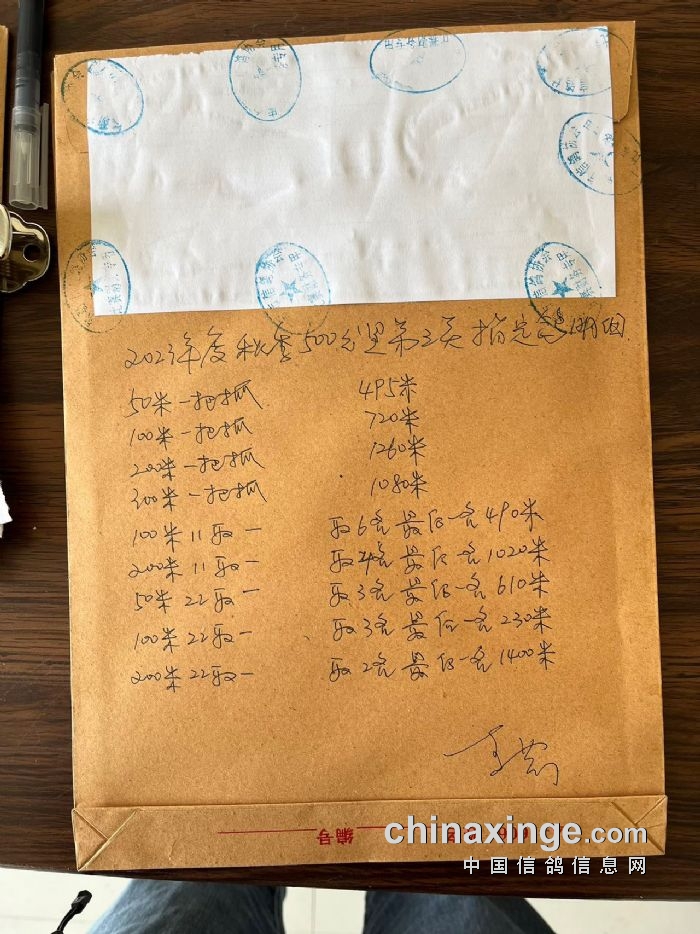 2023年度秋季500公里第三关指定鸽明细
50米一把抓 495米
100米一把抓 720米
200米一把抓 1260米
300米一把抓 1080米
100米11取一 取6名最后一名490米
200米11取一 取4名最后一名1020米
50米22取一 取3名最后一名610米
100米22取一 取3名最后一名230米
200米22取一 取2名最后一名1400米
编号
chinaxinge.com
中国信鸽信息网